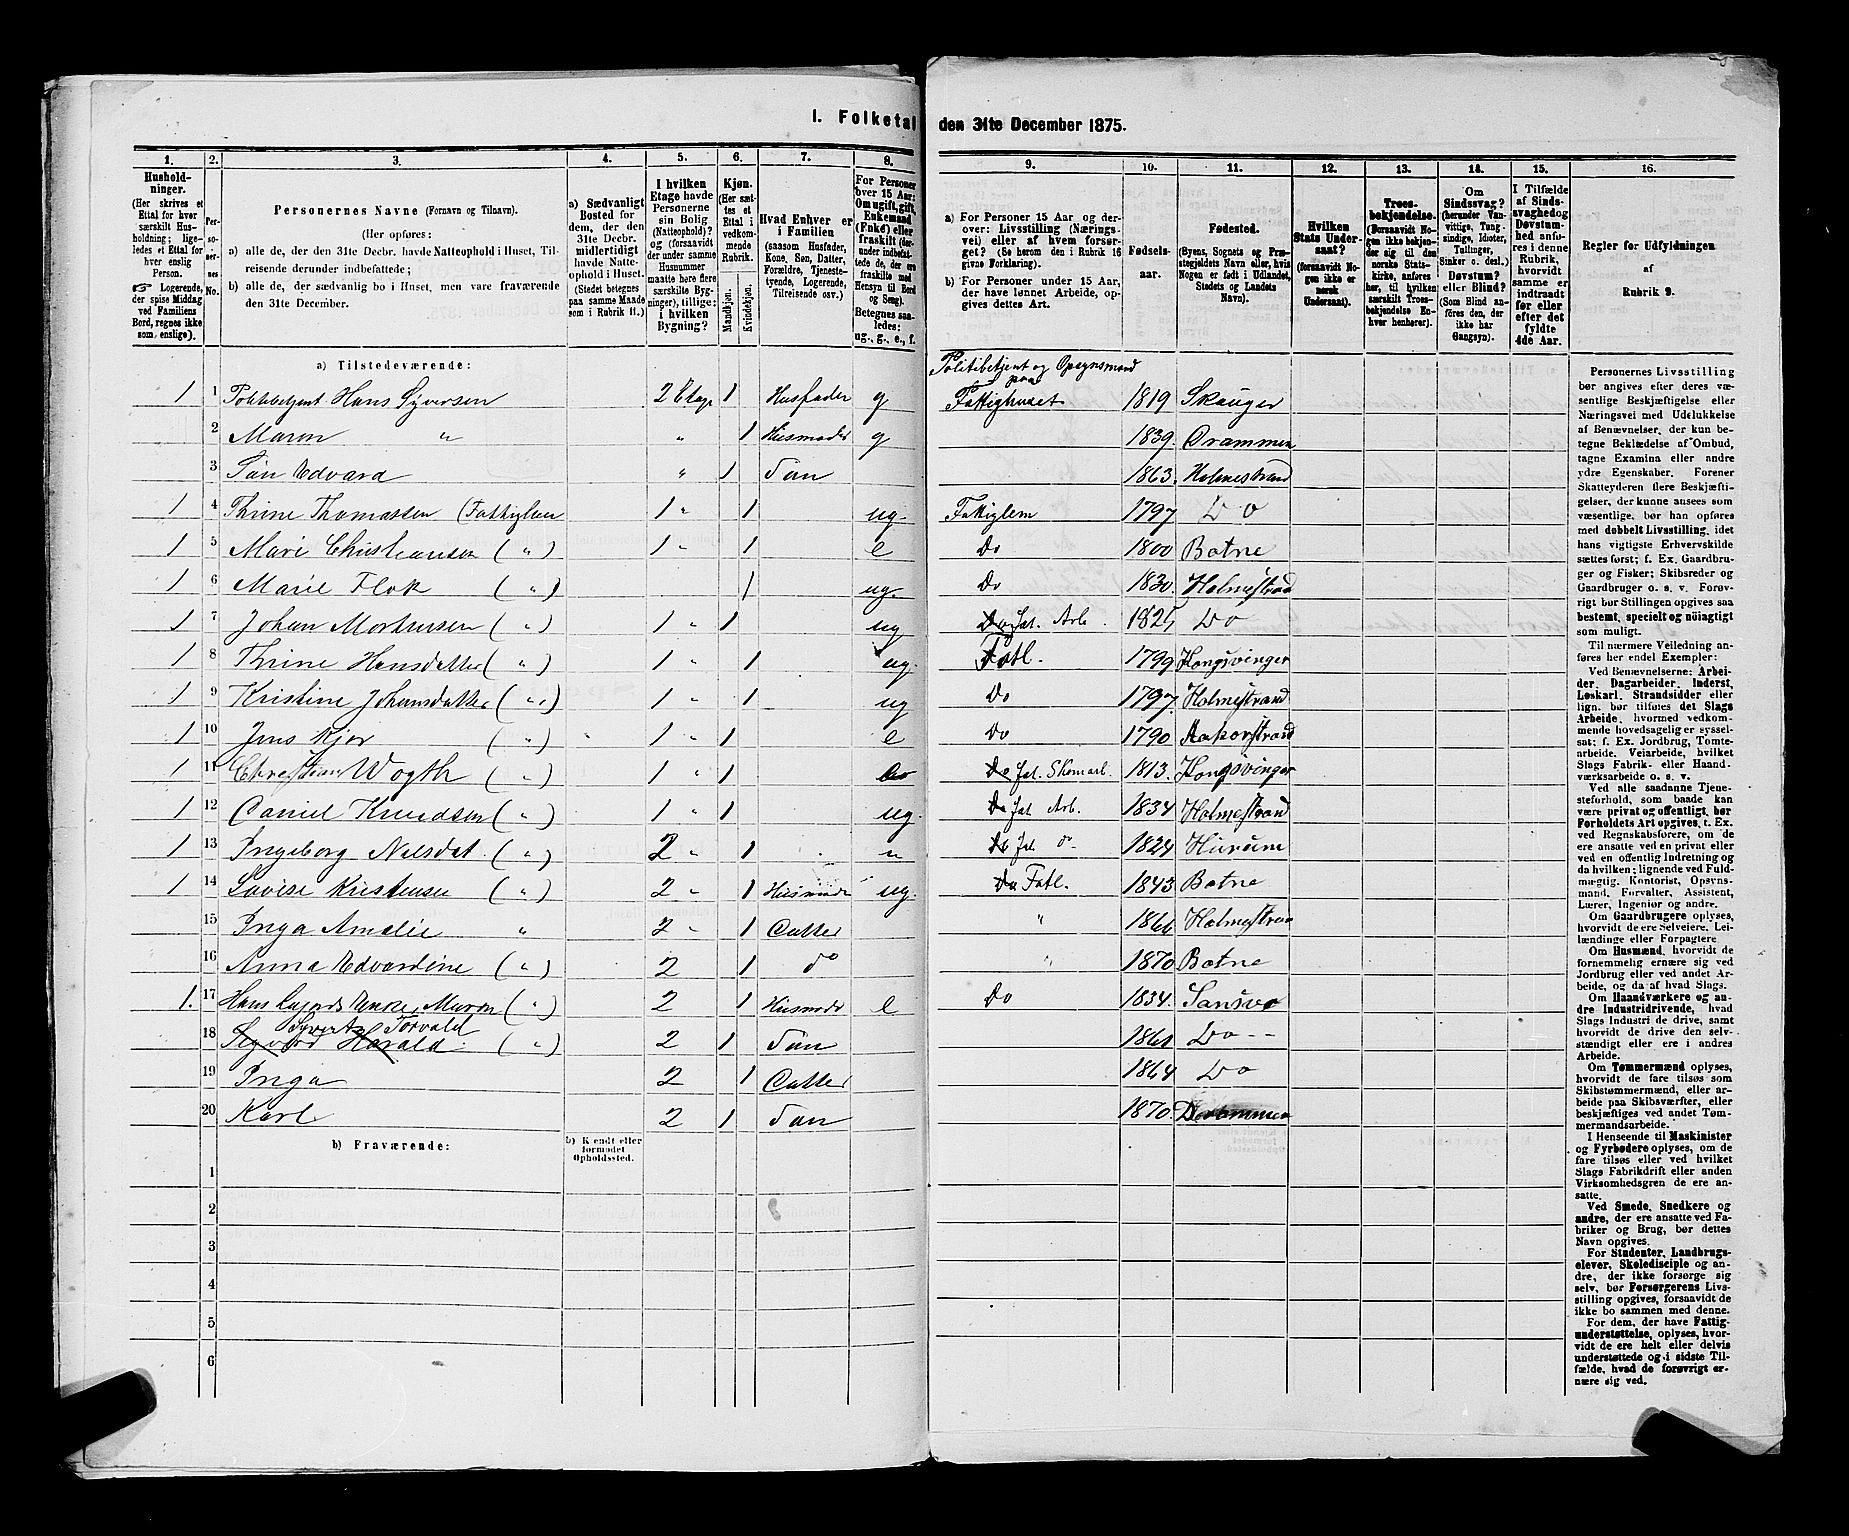 I. Folketal den 31te December 1875.
1. 2. 3. 4. 5. 6. 7. 8. 9. 10. 11. 12. 13. 14. 15. 16.
Hushold-
ninger.
(Her skrives et
Ettal for hver
særskilt Hus-
holdning; lige-
ledes et Ettal for
hver enslig
Person.
☞ Logerende,
der spise Middag
ved Familiens
Bord, regnes ikke
som enslige).
Per-
so-
ner-
nes
No.
Personernes Navne (Fornavn og Tilnavn).
(Her opføres:
a) alle de, der den 31te Decbr. havde Natteophold i Huset, Til-
reisende derunder indbefattede;
b) alle de, der sædvanlig bo i Huset, men vare fraværende
den 31te December.
a) Sædvanligt
Bosted for
dem, der den
31te Decbr.
midlertidigt
havde Natte-
ophold i Huset.
(Stedet betegnes
paa samme Maade
som i Rubrik 11.)
I hvilken
Etage havde
Personerne
sin Bolig
(Natteophold)?
og (forsaavidt
der under samme
Husnummer
maatte høre flere
særskilte Byg-
ninger), tillige:
i hvilken
Bygning?
Kjøn.
(Her sæt-
tes et
Ettal i
vedkom-
mende
Rubrik.
Mandkjøn.
Kvindekjøn.
Hvad Enhver er
i Familien
(saasom Husfader,
Kone, Søn, Datter,
Forældre, Tjeneste-
tyende, Logerende,
Tilreisende osv.)
For Personer
over 15 Aar:
Om ugift, gift,
Enkemand
(Enke) eller
fraskilt (der-
under indbefat-
tede de, der ere
fraskilte med
Hensyn til Bord
og Seng).
Betegnes saa-
ledes:
ug., g., e., f.
a) For Personer 15 Aar og der-
over: Livsstilling (Nærings-
vei) eller af hvem forsør-
get? (Se herom den i Rubrik 16
givne Forklaring).
b) For Personer under 15 Aar,
der have lønnet Arbeide, op-
gives dettes Art.
Fødsels-
aar.
Fødested.
(Byens, Sognets og Præ-
stegjeldets Navn eller, hvis
Nogen er født i Udlandet,
Stedets og Landets
Navn).
Hvilken
Stats Under-
saat?
(forsaavidt No-
gen ikke er
norsk
Undersaat).
Troes-
bekjendelse.
(Forsaavidt No-
gen ikke bekjen-
der sig til den
norske Stats-
kirke, anføres
her, til hvilken
særskilt Troes-
bekjendelse En-
hver henhører).
Om
Sindssvag?
(herunder Van-
vittige, Tung-
sindige, Idioter,
Tullinger,
Sinker o. desl.)
Døvstum?
eller Blind?
(Som Blind an-
føres den, der
ikke har
Gangsyn).
I Tilfælde
af Sinds-
svaghed og
Døvstum-
hed anfø-
res i denne
Rubrik,
hvorvidt
samme er
indtraadt
før eller
efter det
fyldte
4de Aar.
Regler for Udfyldningen
af
Rubrik 9.
a) Tilstedeværende:
Politibetjent og Opsynsmand
paa
1 1 Politibetjent Hans Syversen 2 Etage 1 Husfader g Fattighuset 1819 Skauger
2 Maren " " 1 Husmoder g 1839. Drammen
3 Søn Edvard " 1 Søn 1863. Holmestrand
1 4 Thrine Thomassen (Fattiglem 1 " 1 ug. Fattiglem 1797 Do
1 5 Mari Christiansen (") 1 " 1 e Do 1800 Botne
1 6 Marie Flok (") 1 ug. Do 1830. Holmestrand
1 7 Johan Mortensen (") 1 " 1 ug Do Jal. Arb. 1825, Do
1 8 Thrine Hansdatter (") 1 " 1 ug. Fatl. 1799 Kongsvinger
1 9 Kristine Johansdatter (") 1 " 1 ug Do 1797. Holmestrand
1 10 Jens Kjær (") 1 " 1 e Do 1790
1 11 Christian Wogth (") 1 " 1 Do Do Jal. Skomarb. 1813. Kongsvinger
1 12 Daniel Knudsen (") 1 " 1 ug. Do Jal Arb. 1834 Holmestrand
1 13 Ingeborg Nilsdat. (") 2 " 1 " Do Jal do 1824 Hurum
1 14 Lovise Kristensen (") 2 " 1 Husmoder ug. Do Fatl. 1843 Botne
15 Inga Amalie " 2 " 1 Datter " 1866 Holmestrand
16 Anna Edvardine (") 2 1 do " 1870 Botne
1. 17 Hans Enke, Maren (") 2 1 Husmoder e Do 1834. Sansvær
Syvert Torvald
18 Sigvard Harald. (") 2 1 Søn 1861 Do
19 Inga 2 1 Datter 1864 Do
20 Karl 2 1 Søn 1870. Drammen
b) Fraværende:
b) Kjendt eller
formodet
Opholdssted.
1
2
3
4
5
6
Personernes Livsstilling
bør angives efter deres væ-
sentlige Beskjæftigelse eller
Næringsvei med Udelukkelse
af Benævnelser, der kun be-
tegne Beklædelse af Ombud,
tagne Examina eller andre
ydre Egenskaber. Forener
Skatteyderen flere Beskjæfti-
gelser, der kunne ansees som
væsentlige, bør han opføres
med dobbelt Livsstilling, idet
hans vigtigste Erhvervskilde
sættes først; f. Ex. Gaardbru-
ger og Fisker; Skibsreder og
Gaardbruger o. s. v. Forøv-
rigt bør Stillingen opgives saa
bestemt, specielt og nøiagtigt
som muligt.
Til nærmere Veiledning an-
føres her endel Exempler:
Ved Benævnelserne: Arbei-
der, Dagarbeider, Inderst,
Løskarl, Strandsidder eller
lign. bør tilføies det Slags
Arbeide, hvormed vedkom-
mende hovedsagelig er syssel-
sat; f. Ex. Jordbrug, Tomte-
arbeide, Veiarbeide, hvilket
Slags Fabrik- eller Haand-
værksarbeide o. s. v.
Ved alle saadanne Tjene-
steforhold, som baade kan
være privat og offentligt, bør
Forholdets Art opgives, t. Ex.
ved Regnskabsførere, om de
ere ansatte ved en privat eller
ved en offentlig Indretning og
da hvilken; lignende ved Fuld-
mægtig, Kontorist, Opsyns-
mand, Forvalter, Assistent,
Lærer, Ingeniør og andre.
Om Gaardbrugere oplyses,
hvorvidt de ere Selveiere, Lei-
lændinge eller Forpagtere
Om Husmænd, hvorvidt de
fornemmelig ernære sig ved
Jordbrug eller ved andet Ar-
beide, og da af hvad Slags.
Om Haandværkere og an-
dre Industridrivende, hvad
Slags Industri de drive, samt
hvorvidt de drive den selv-
stændigt eller ere i andres
Arbeide.
Om Tømmermænd oplyses,
hvorvidt de fare tilsøs som
Skibstømmermænd, eller ar-
beide paa Skibsværfter, eller
beskjæftiges ved andet Tøm-
mermandsarbeide.
I Henseende til Maskinister
og Fyrbødere oplyses, om de
fare tilsøs eller ved hvilket
Slags Fabrikdrift eller anden
Virksomhedsgren de ere an-
satte.
Ved Smede, Snedkere og
andre, der ere ansatte ved Fa-
briker og Brug, bør dettes
Navn opgives.
For Studenter, Landbrugs-
elever, Skoledisciple og an-
dre, der ikke forsørge sig
selv, bør Forsørgerens Livs-
stilling opgives, forsaavidt de
ikke bo sammen med denne.
For dem, der have Fattig-
understøttelse, oplyses, hvor-
vidt de ere helt eller delvis
understøttede og i sidste Til-
fælde, hvad de forøvrigt er-
nære sig ved.